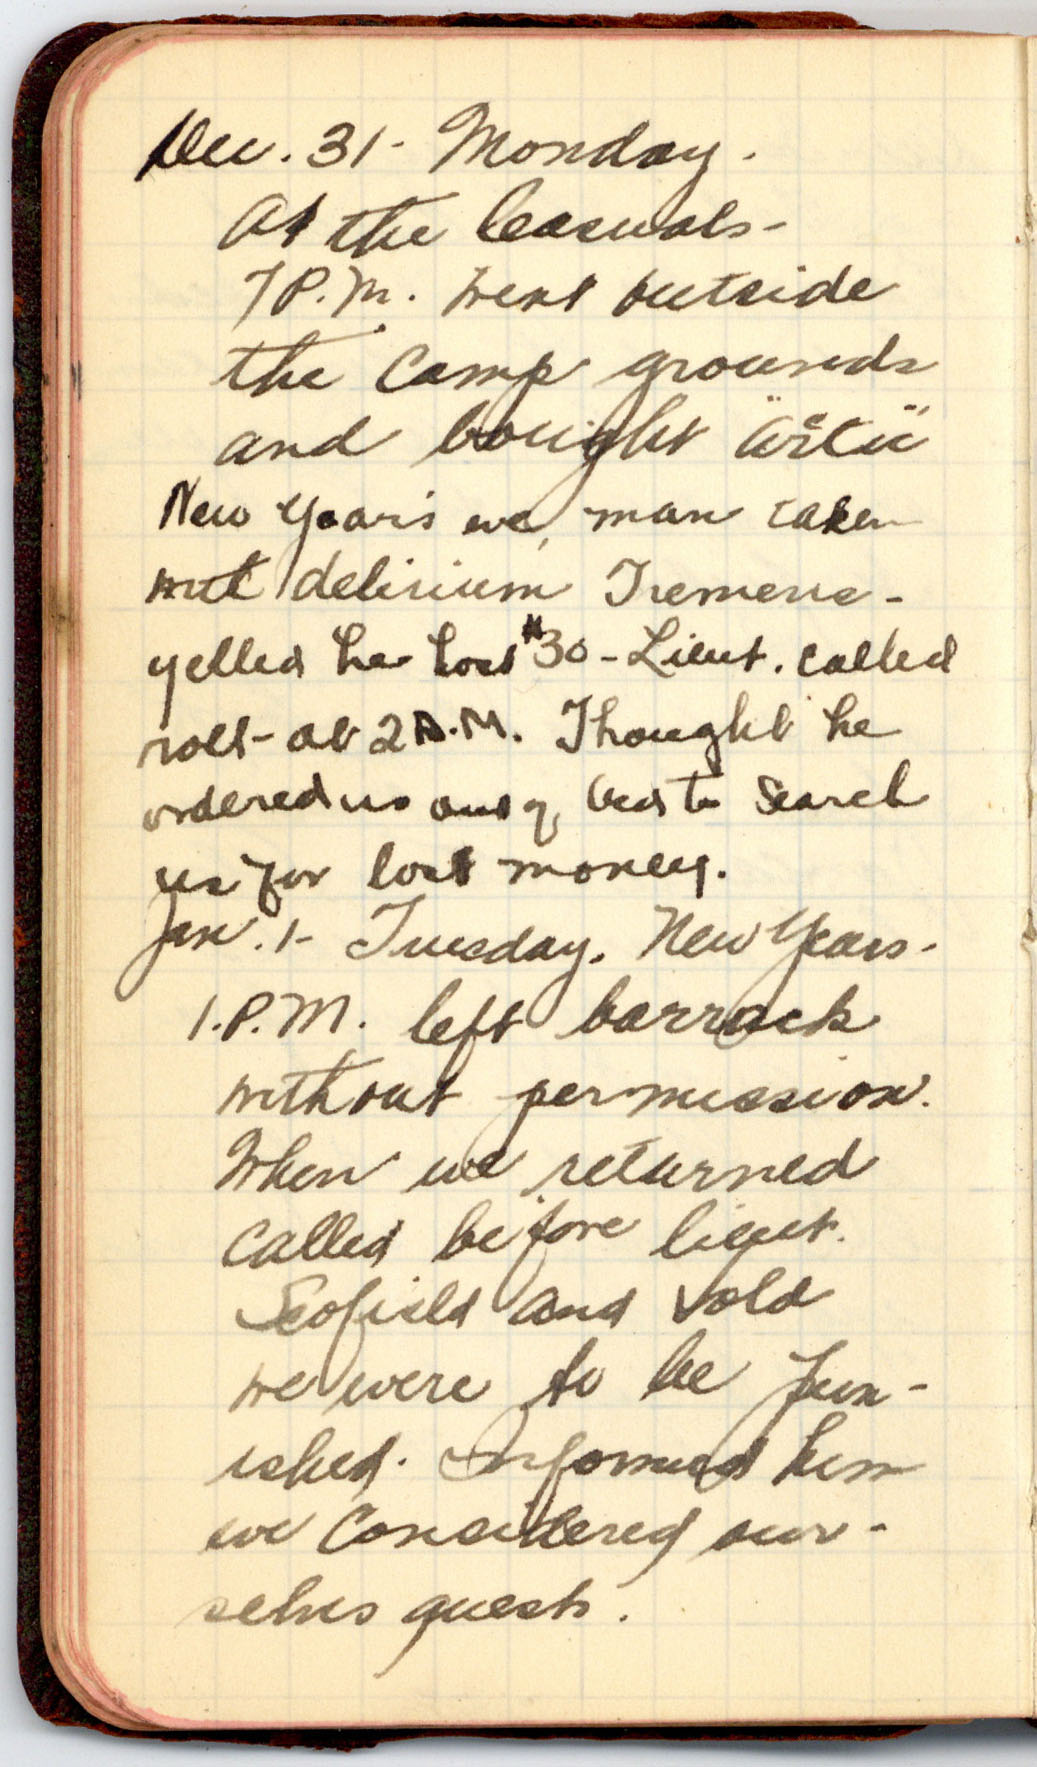 Dec. 31 - Monday.
At the Casuals -
7 P.M. went outside
the Camp grounds
and bought
New Years eve, man taken
with delirium Tremens -
yelled he lost $30 - Lieut. called
roll - at 2 A.M. Thought he
ordered us out of bed to search
us for lost money.
Jan. 1 - Tuesday. New Years -
1.P.M. left barrack
without permission.
When we returned
called before lieut.
Scofield and told
we were to be pun-
ished. Informed him
we considered our-
selves guests.